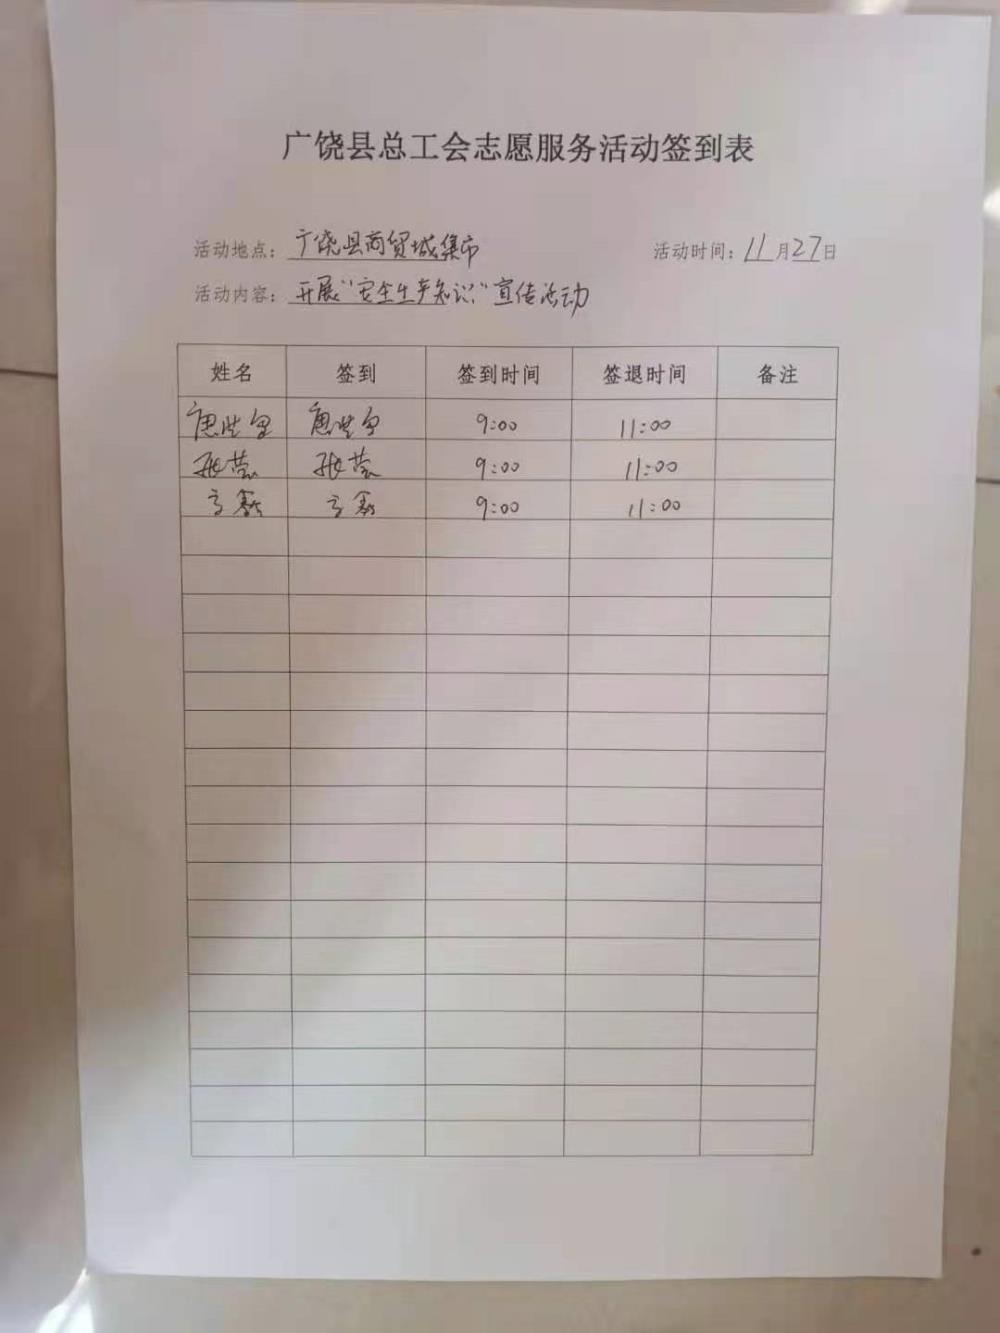 广饶县总工会志愿服务活动签到表
活动地点：广饶县商贸城集市 活动时间：11月27日
活动内容：开展“安全生产知识”宣传活动
姓名 签到 签到时间 签退时间 备注
9:00 11:00
张莹 张莹 9:00 11:00
9:00 11:00